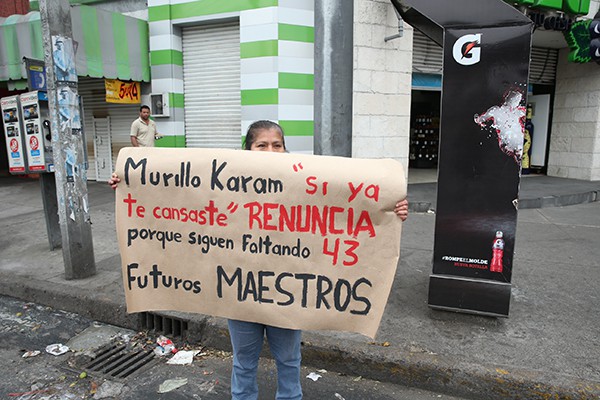 Murillo Karam "si ya
te cansaste" RENUNCIA
porque siguen Faltando 43
Futuros MAESTROS
G
#ROMPEELMOLDE